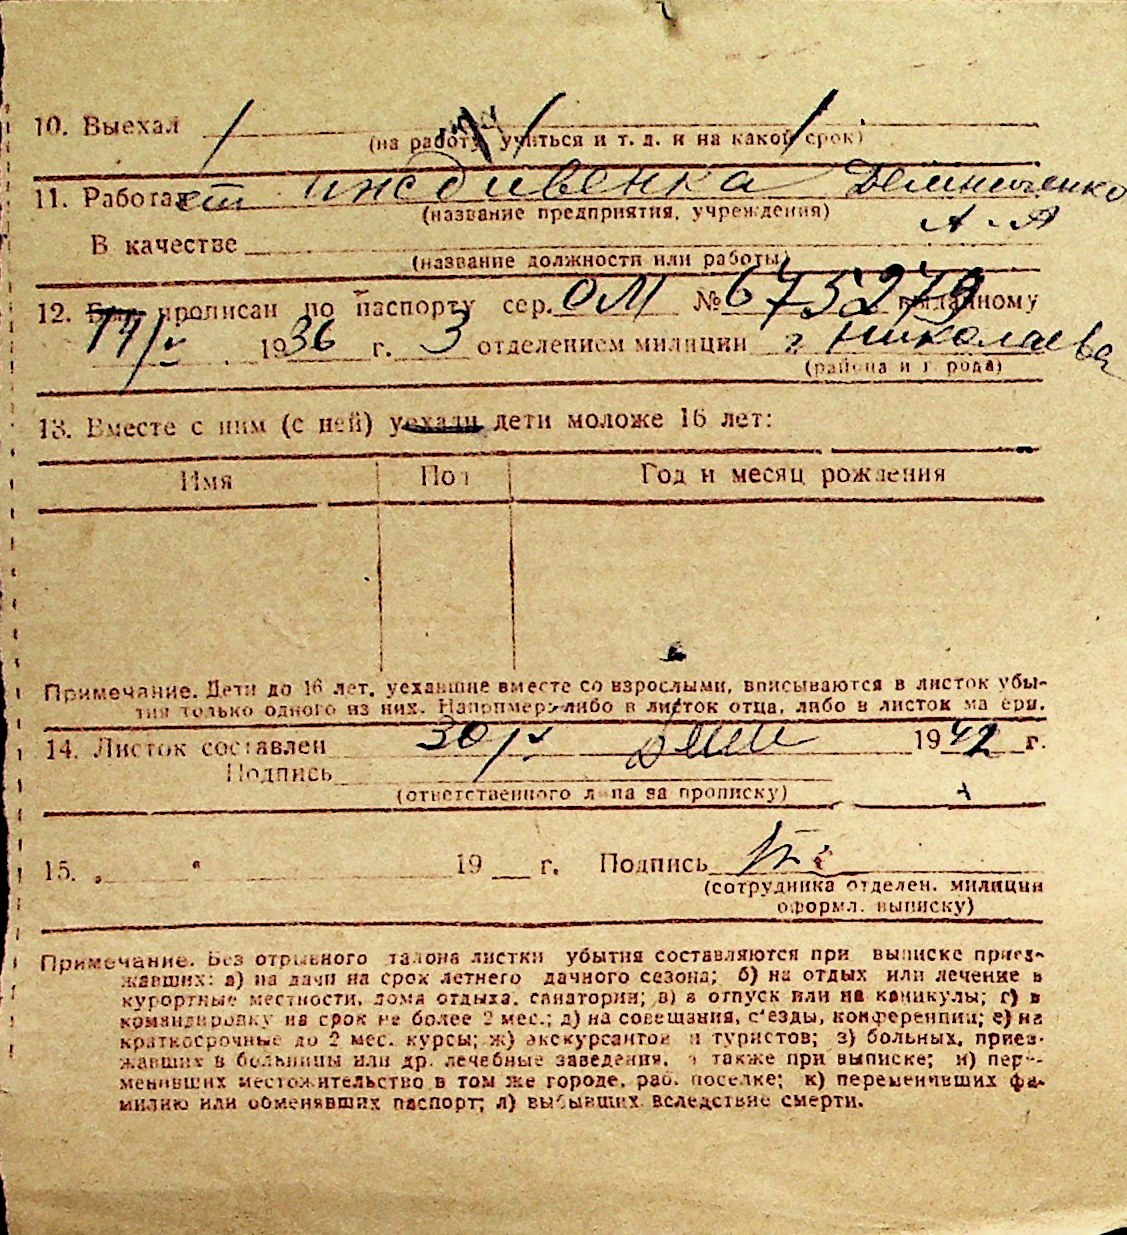 10. Выехал
(на работу, учиться и т. д. и на какой срок)
11. Работает иждивенка
(название предприятия, учреждения)
А. Я
В качестве
(название должности или работы)
12. Был прописан по паспорту сер. ОМ № 675279 выданному
14/V 1936 г. 3 отделением милиции г. Николаева
(района и города)
13. Вместе с ним (с ней) уехали дети моложе 16 лет:
Имя Пол Год и месяц рождения
Примечание. Дети до 16 лет, уехавшие вместе со взрослыми, вписываются в листок убы-
тия только одного из них. Например: либо в листок отца, либо в листок матери.
14. Листок составлен 30/V 1942 г.
Подпись
(ответственного лица за прописку)
15. „ “ 19 г. Подпись
(сотрудника отделен. милиции
оформл. выписку)
Примечание. Без отрывного талона листки убытия составляются при выписке приез-
жавших: а) на дачи на срок летнего дачного сезона; б) на отдых или лечение в
курортные местности, дома отдыха, санатории; в) в отпуск или на каникулы; г) в
командировку на срок не более 2 мес.; д) на совещания, с'езды, конференции; е) на
краткосрочные до 2 мес. курсы; ж) экскурсантов и туристов; з) больных, приез-
жавших в больницы или др. лечебные заведения, а также при выписке; и) пере-
менивших местожительство в том же городе, раб. поселке; к) переменивших фа-
милию или обменявших паспорт; л) выбывших вследствие смерти.